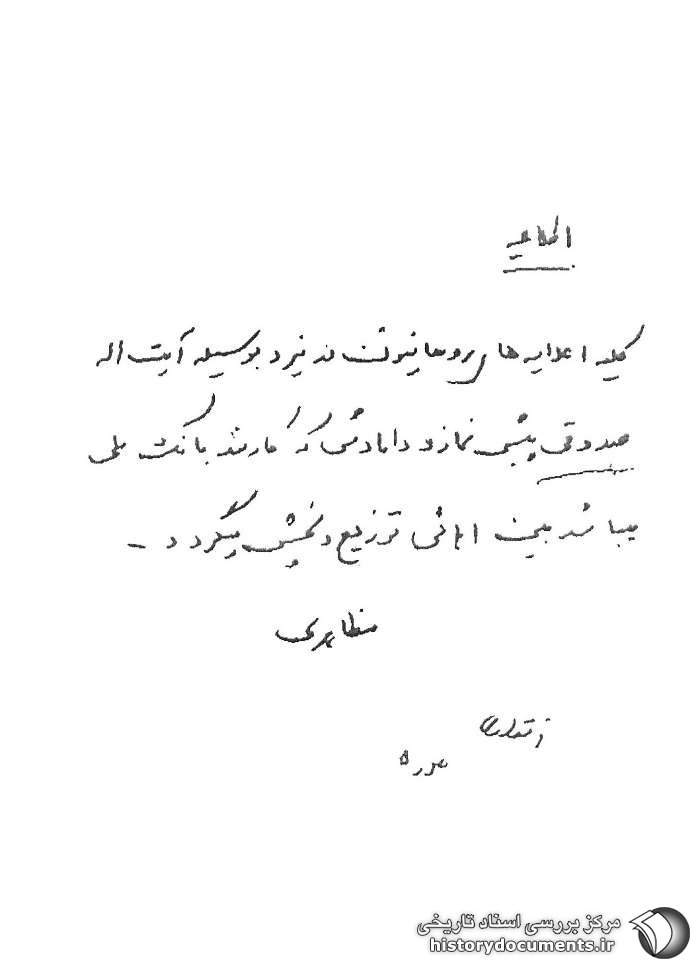 اطلاعیه
کلیه اعلامیه های روحانیون در یزد بوسیله آیت اله
صدوقی پیش نماز و دامادش که کارمند بانک ملی
میباشد بین اهالی توزیع و پخش میگردد –
مظاهری
مرکز بررسی اسناد تاریخی
historydocuments.ir